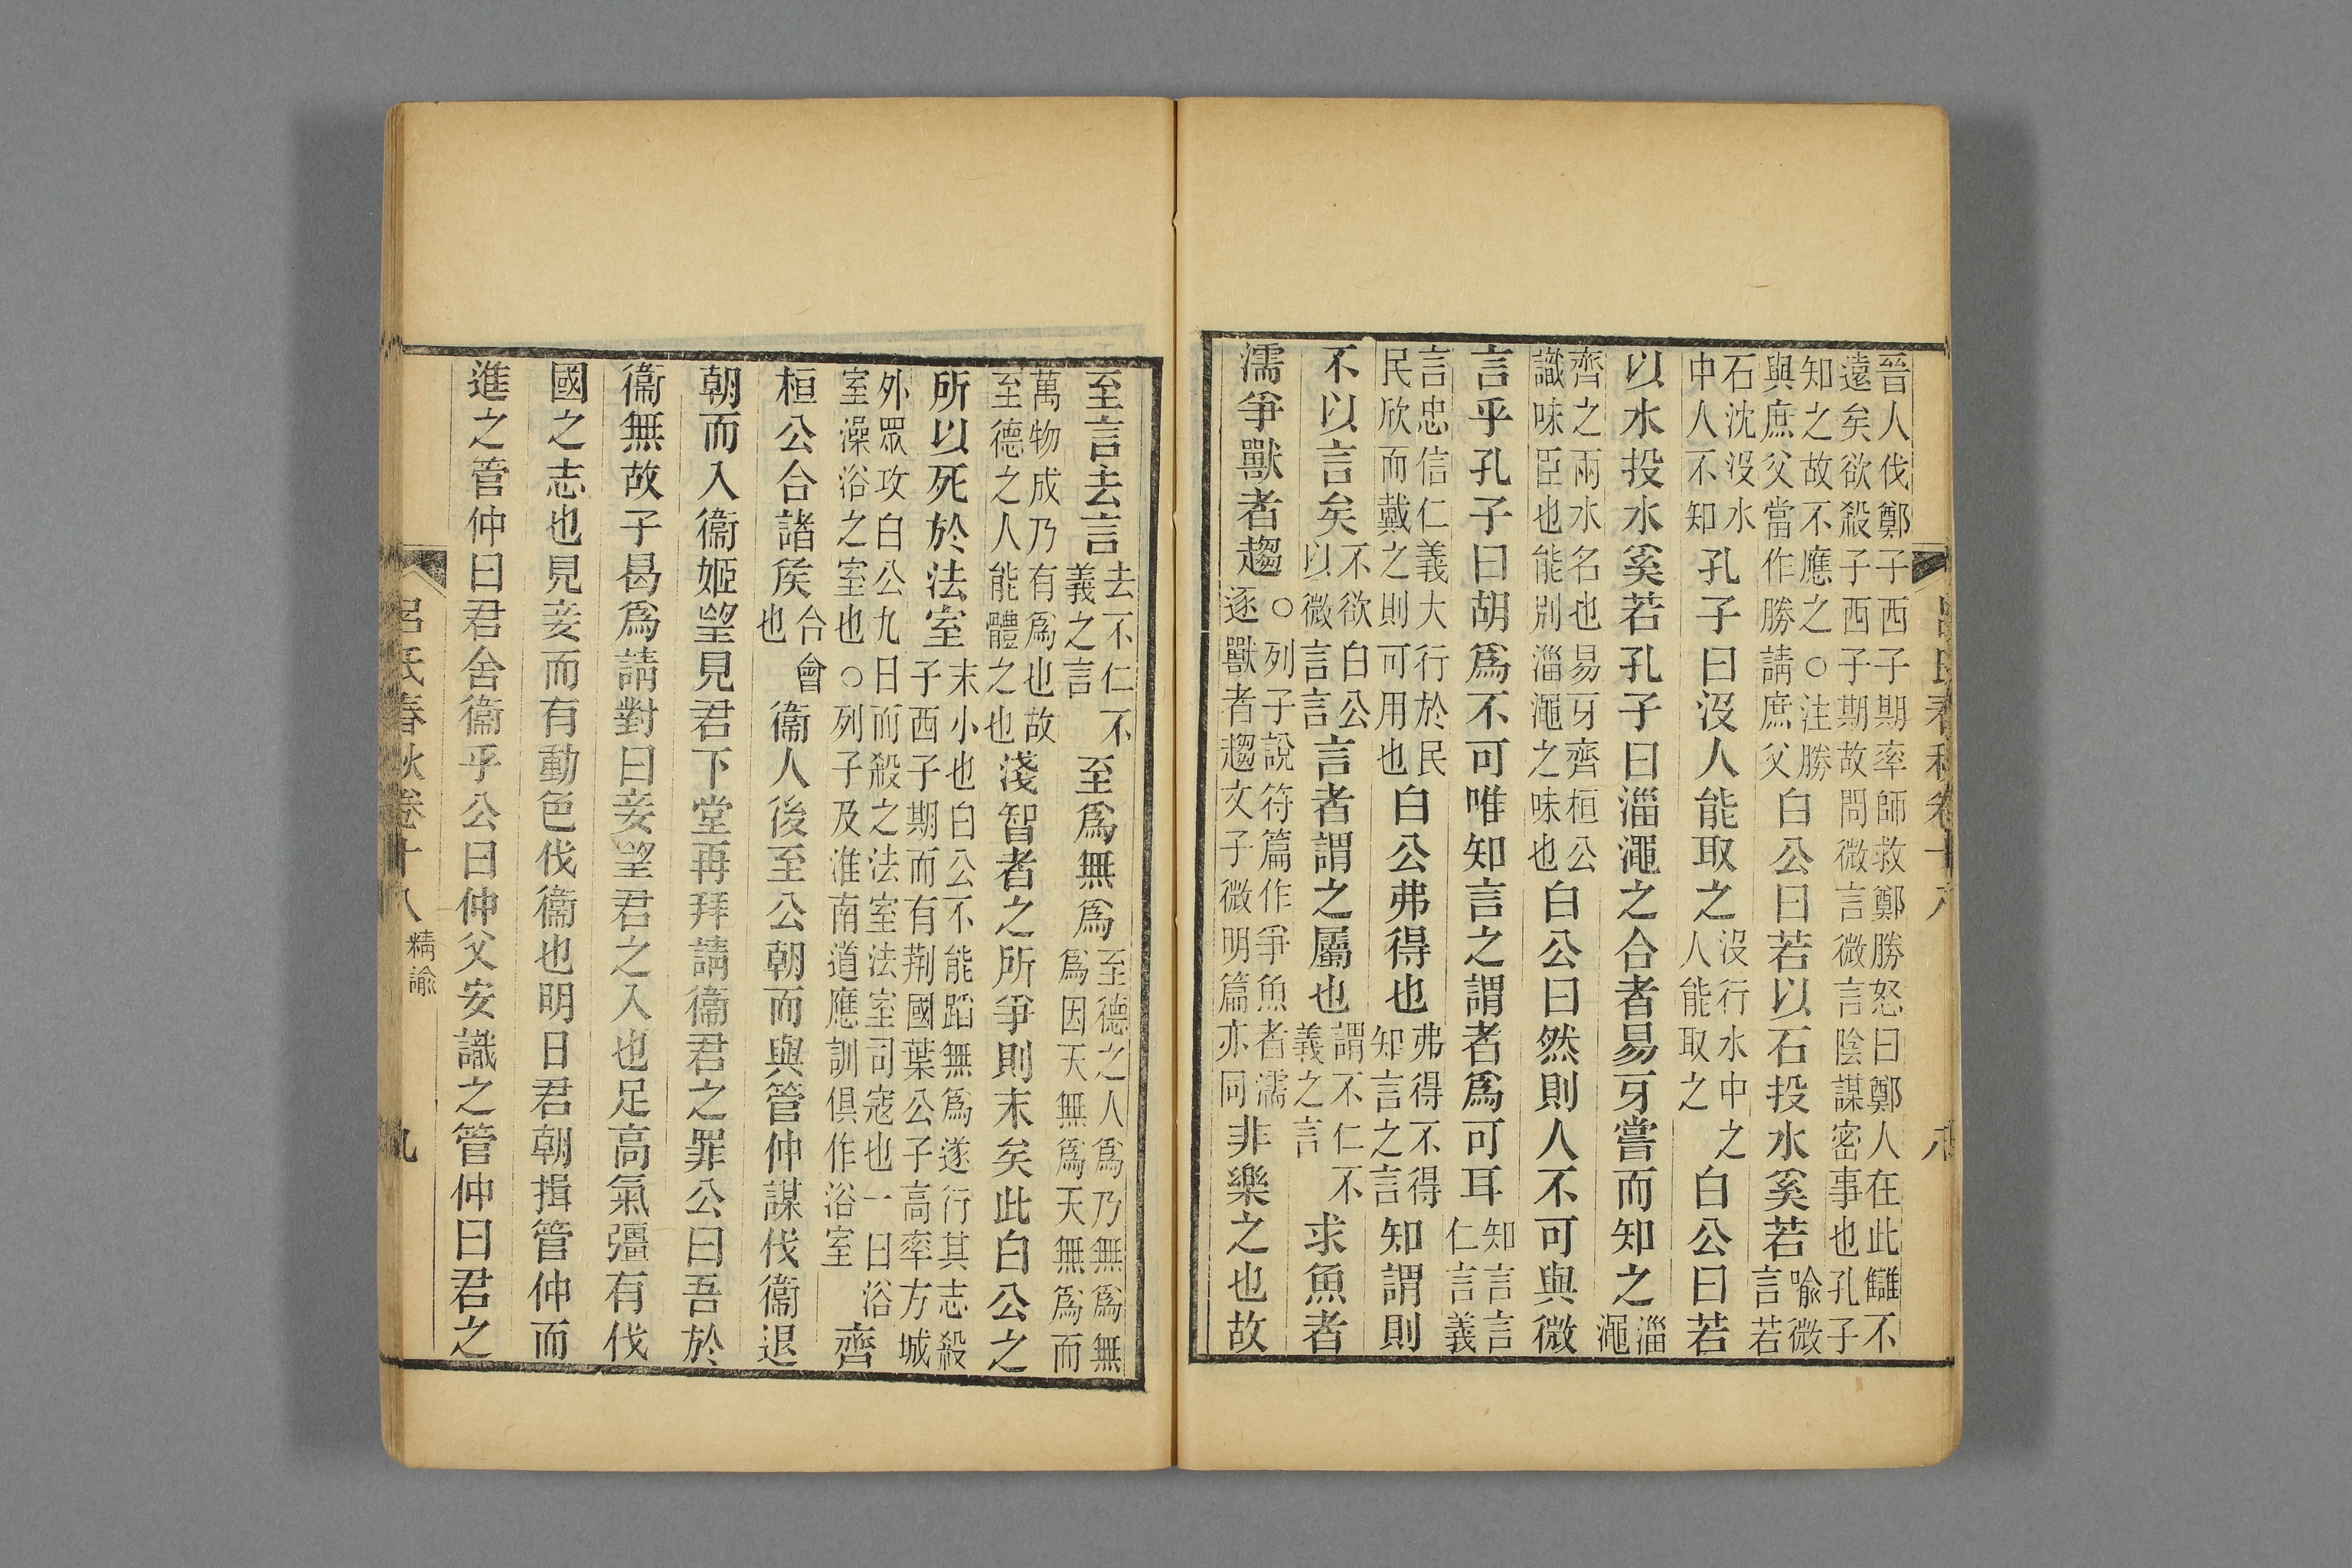 晉人伐鄭子西子期率師救鄭勝怒曰鄭人在此讎不
遠矣欲殺子西子期故問微言微言陰謀密事也孔子
知之故不應之○注勝
與庶父當作勝請庶父
白公曰若以石投水奚若
喻微
言若
石沈沒水
中人不知
孔子曰沒人能取之
沒行水中之
人能取之
白公曰若
以水投水奚若孔子曰淄澠之合者易牙嘗而知之
淄
澠
齊之兩水名也易牙齊桓公
識味臣也能別淄澠之味也
白公曰然則人不可與微
言乎孔子曰胡爲不可唯知言之謂者爲可耳
知言言
仁言義
言忠信仁義大行於民
民欣而戴之則可用也
白公弗得也
弗得不得
知言之言
知謂則
不以言矣
不欲白公
以微言言
言者謂之屬也
謂不仁不
義之言
求魚者
濡爭獸者趨
○列子說符篇作爭魚者濡
逐獸者趨文子微明篇亦同
非樂之也故
至言去言
去不仁不
義之言
至爲無爲
至德之人爲乃無爲無
爲因天無爲天無爲而
萬物成乃有爲也故
至德之人能體之也
淺智者之所爭則末矣此白公之
所以死於法室
末小也白公不能蹈無爲遂行其志殺
子西子期而有荆國葉公子高率方城
外眾攻白公九日而殺之法室法室司寇也一曰浴
室澡浴之室也○列子及淮南道應訓俱作浴室
齊
桓公合諸矦
合會
也
衞人後至公朝而與管仲謀伐衞退
朝而入衞姬望見君下堂再拜請衞君之罪公曰吾於
衞無故子曷爲請對曰妾望君之入也足高氣彊有伐
國之志也見妾而有動色伐衞也明日君朝揖管仲而
進之管仲曰君舍衞乎公曰仲父安識之管仲曰君之
呂氏春秋卷十八
精諭
九